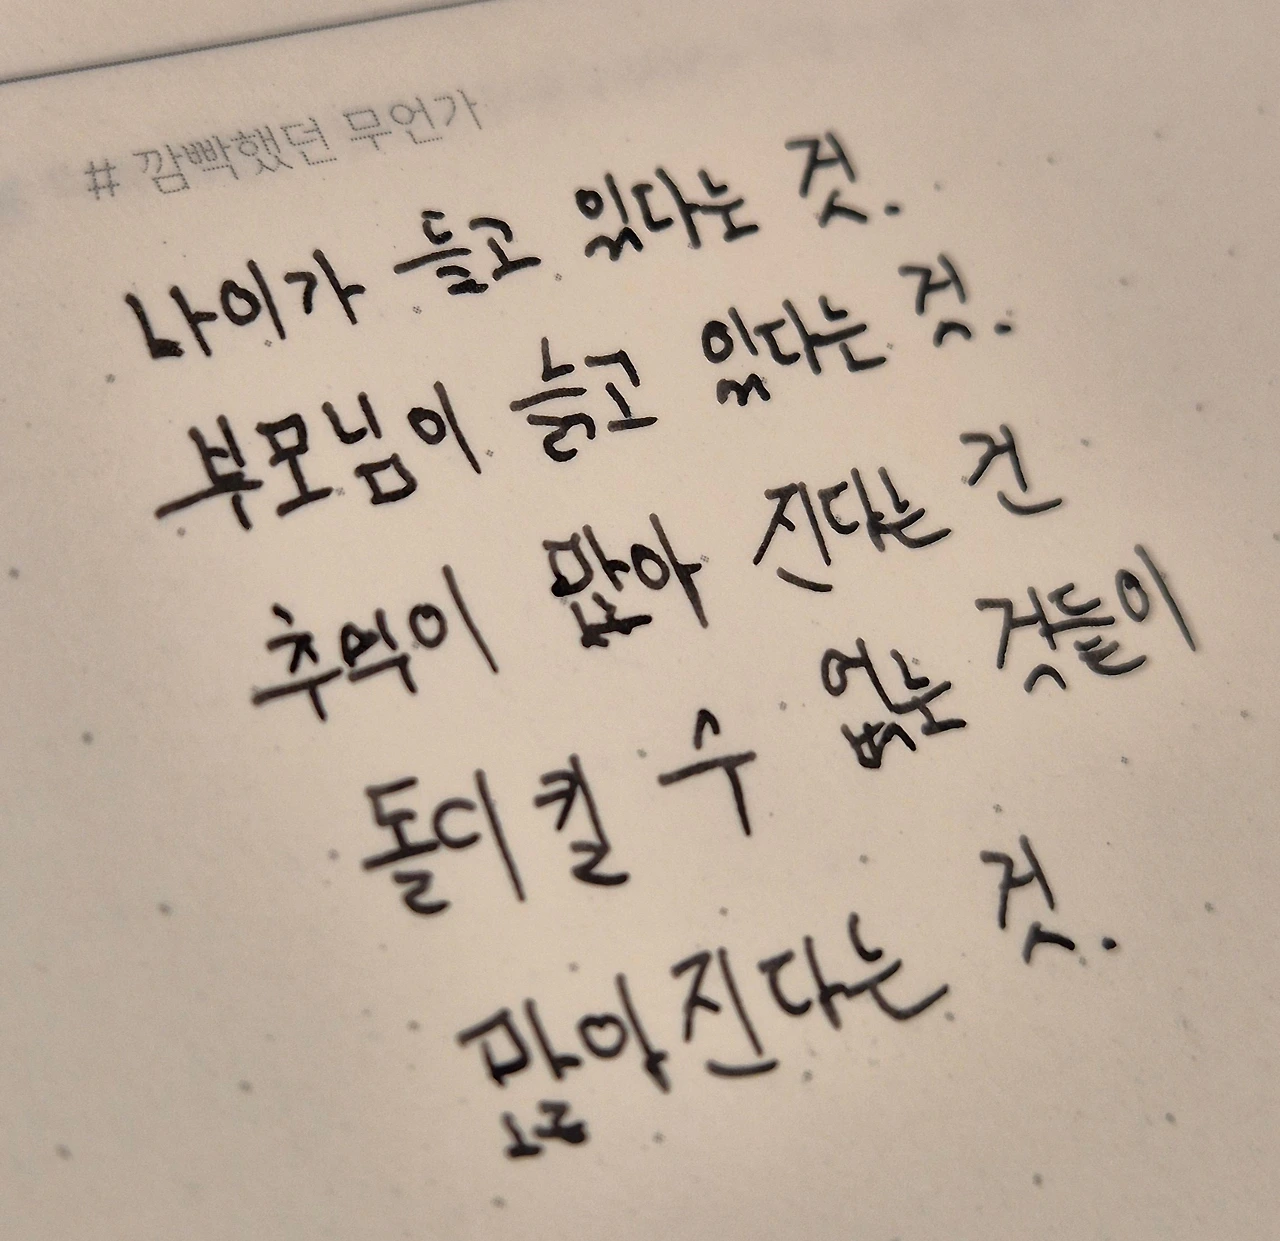 # 깜빡했던 무언가
나이가 들고 있다는 것.
부모님이 늙고 있다는 것.
추억이 많아 진다는 건
돌디킬 수 없는 것들이
많아진다는 것.